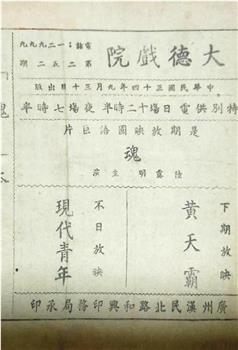 大德戲院
電話：一二九九九
第二五二期
中華民國三十四年九月十三日出版
特別供電日場十二時半夜場七時半
是期放映國語巨片
魂
陸露明主演
下期放映
黃天霸
不日放映
現代青年
廣州漢民北路和興印務局承印